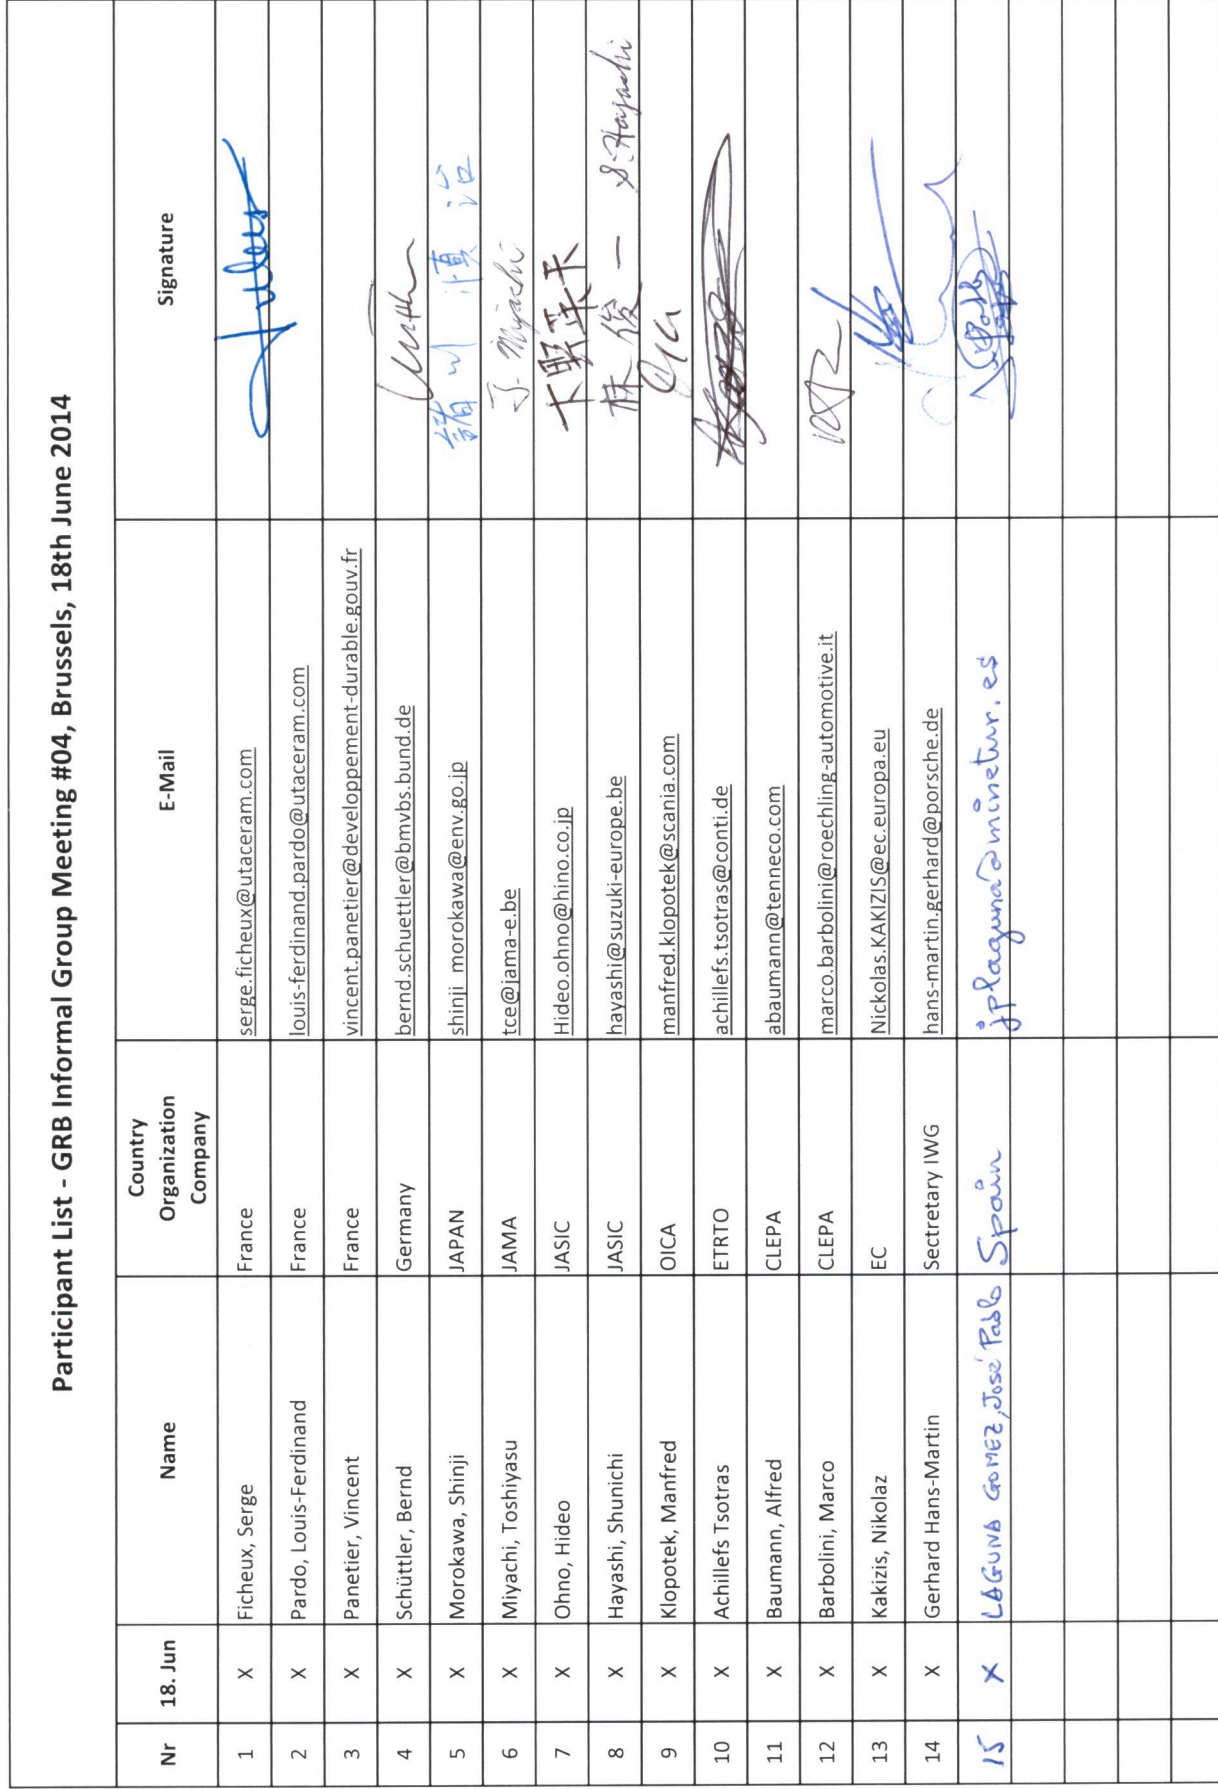 Participant List - GRB Informal Group Meeting #04, Brussels, 18th June 2014
Nr 18. Jun Name Country Organization Company E-Mail Signature
1 X Ficheux, Serge France serge.ficheux@utaceram.com
2 X Pardo, Louis-Ferdinand France louis-ferdinand.pardo@utaceram.com
3 X Panetier, Vincent France vincent.panetier@developpement-durable.gouv.fr
4 X Schüttler, Bernd Germany bernd.schuettler@bmvbs.bund.de
5 X Morokawa, Shinji JAPAN shinji_morokawa@env.go.jp 諸川 慎治
6 X Miyachi, Toshiyasu JAMA tce@jama-e.be J. Miyachi
7 X Ohno, Hideo JASIC Hideo.ohno@hino.co.jp
8 X Hayashi, Shunichi JASIC hayashi@suzuki-europe.be 林 俊一 S. Hayashi
9 X Klopotek, Manfred OICA manfred.klopotek@scania.com
10 X Achillefs Tsotras ETRTO achillefs.tsotras@conti.de
11 X Baumann, Alfred CLEPA abaumann@tenneco.com
12 X Barbolini, Marco CLEPA marco.barbolini@roechling-automotive.it
13 X Kakizis, Nikolaz EC Nickolas.KAKIZIS@ec.europa.eu
14 X Gerhard Hans-Martin Sectretary IWG hans-martin.gerhard@porsche.de
15 X LAGUNA GOMEZ, José Pablo Spain jplaguna@minetur.es